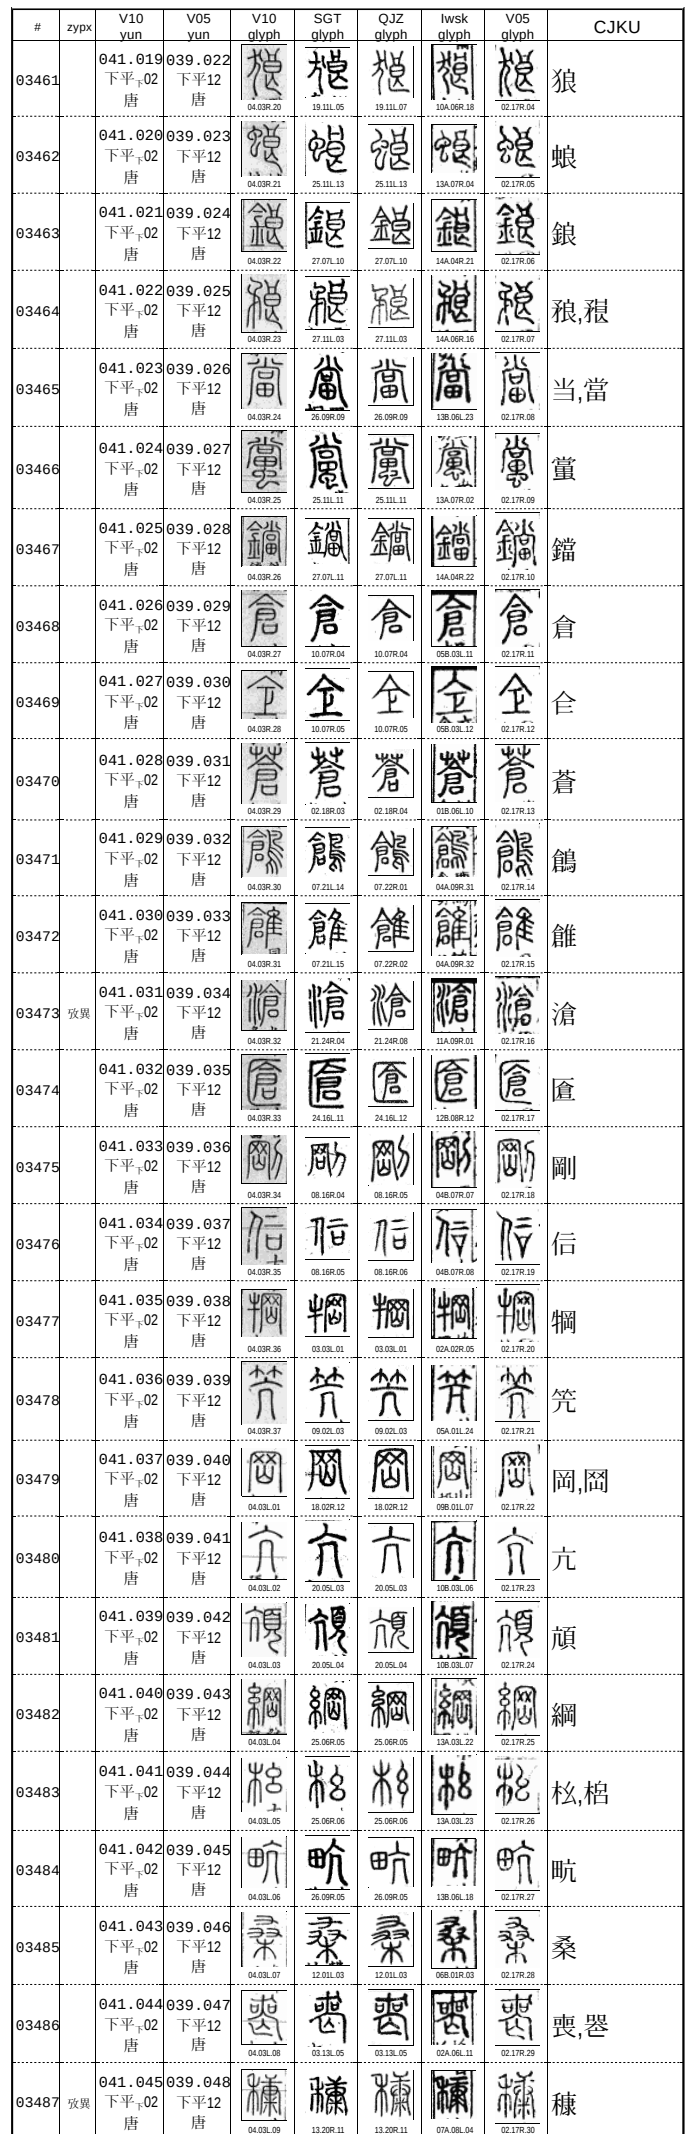 # zypx V10 yun V05 yun V10 glyph SGT glyph QJZ glyph Iwsk glyph V05 glyph CJKU
03461 041.019 下平下02 唐 039.022 下平12 唐 04.03R.20 19.11L.05 19.11L.07 10A.06R.18 02.17R.04 狼
03462 041.020 下平下02 唐 039.023 下平12 唐 04.03R.21 25.11L.13 25.11L.13 13A.07R.04 02.17R.05 蜋
03463 041.021 下平下02 唐 039.024 下平12 唐 04.03R.22 27.07L.10 27.07L.10 14A.04R.21 02.17R.06 鋃
03464 041.022 下平下02 唐 039.025 下平12 唐 04.03R.23 27.11L.03 27.11L.03 14A.06R.16 02.17R.07
03465 041.023 下平下02 唐 039.026 下平12 唐 04.03R.24 26.09R.09 26.09R.09 13B.06L.23 02.17R.08 当,當
03466 041.024 下平下02 唐 039.027 下平12 唐 04.03R.25 25.11L.11 25.11L.11 13A.07R.02 02.17R.09 蟷
03467 041.025 下平下02 唐 039.028 下平12 唐 04.03R.26 27.07L.11 27.07L.11 14A.04R.22 02.17R.10 鐺
03468 041.026 下平下02 唐 039.029 下平12 唐 04.03R.27 10.07R.04 10.07R.04 05B.03L.11 02.17R.11 倉
03469 041.027 下平下02 唐 039.030 下平12 唐 04.03R.28 10.07R.05 10.07R.05 05B.03L.12 02.17R.12 仺
03470 041.028 下平下02 唐 039.031 下平12 唐 04.03R.29 02.18R.03 02.18R.04 01B.06L.10 02.17R.13 蒼
03471 041.029 下平下02 唐 039.032 下平12 唐 04.03R.30 07.21L.14 07.22R.01 04A.09R.31 02.17R.14 鶬
03472 041.030 下平下02 唐 039.033 下平12 唐 04.03R.31 07.21L.15 07.22R.02 04A.09R.32 02.17R.15 雓
03473 攷異 041.031 下平下02 唐 039.034 下平12 唐 04.03R.32 21.24R.04 21.24R.08 11A.09R.01 02.17R.16 滄
03474 041.032 下平下02 唐 039.035 下平12 唐 04.03R.33 24.16L.11 24.16L.12 12B.08R.12 02.17R.17 匫
03475 041.033 下平下02 唐 039.036 下平12 唐 04.03R.34 08.16R.04 08.16R.05 04B.07R.07 02.17R.18 剛
03476 041.034 下平下02 唐 039.037 下平12 唐 04.03R.35 08.16R.05 08.16R.06 04B.07R.08 02.17R.19
03477 041.035 下平下02 唐 039.038 下平12 唐 04.03R.36 03.03L.01 03.03L.01 02A.02R.05 02.17R.20 犅
03478 041.036 下平下02 唐 039.039 下平12 唐 04.03R.37 09.02L.03 09.02L.03 05A.01L.24 02.17R.21 笐
03479 041.037 下平下02 唐 039.040 下平12 唐 04.03L.01 18.02R.12 18.02R.12 09B.01L.07 02.17R.22 岡,𦊆
03480 041.038 下平下02 唐 039.041 下平12 唐 04.03L.02 20.05L.03 20.05L.03 10B.03L.06 02.17R.23 亢
03481 041.039 下平下02 唐 039.042 下平12 唐 04.03L.03 20.05L.04 20.05L.04 10B.03L.07 02.17R.24 頏
03482 041.040 下平下02 唐 039.043 下平12 唐 04.03L.04 25.06R.05 25.06R.05 13A.03L.22 02.17R.25 綱
03483 041.041 下平下02 唐 039.044 下平12 唐 04.03L.05 25.06R.06 25.06R.06 13A.03L.23 02.17R.26
03484 041.042 下平下02 唐 039.045 下平12 唐 04.03L.06 26.09R.05 26.09R.05 13B.06L.18 02.17R.27 畂
03485 041.043 下平下02 唐 039.046 下平12 唐 04.03L.07 12.01L.03 12.01L.03 06B.01R.03 02.17R.28 桑
03486 041.044 下平下02 唐 039.047 下平12 唐 04.03L.08 03.13L.05 03.13L.05 02A.06L.11 02.17R.29 喪
03487 攷異 041.045 下平下02 唐 039.048 下平12 唐 04.03L.09 13.20R.11 13.20R.11 07A.08L.04 02.17R.30 穅